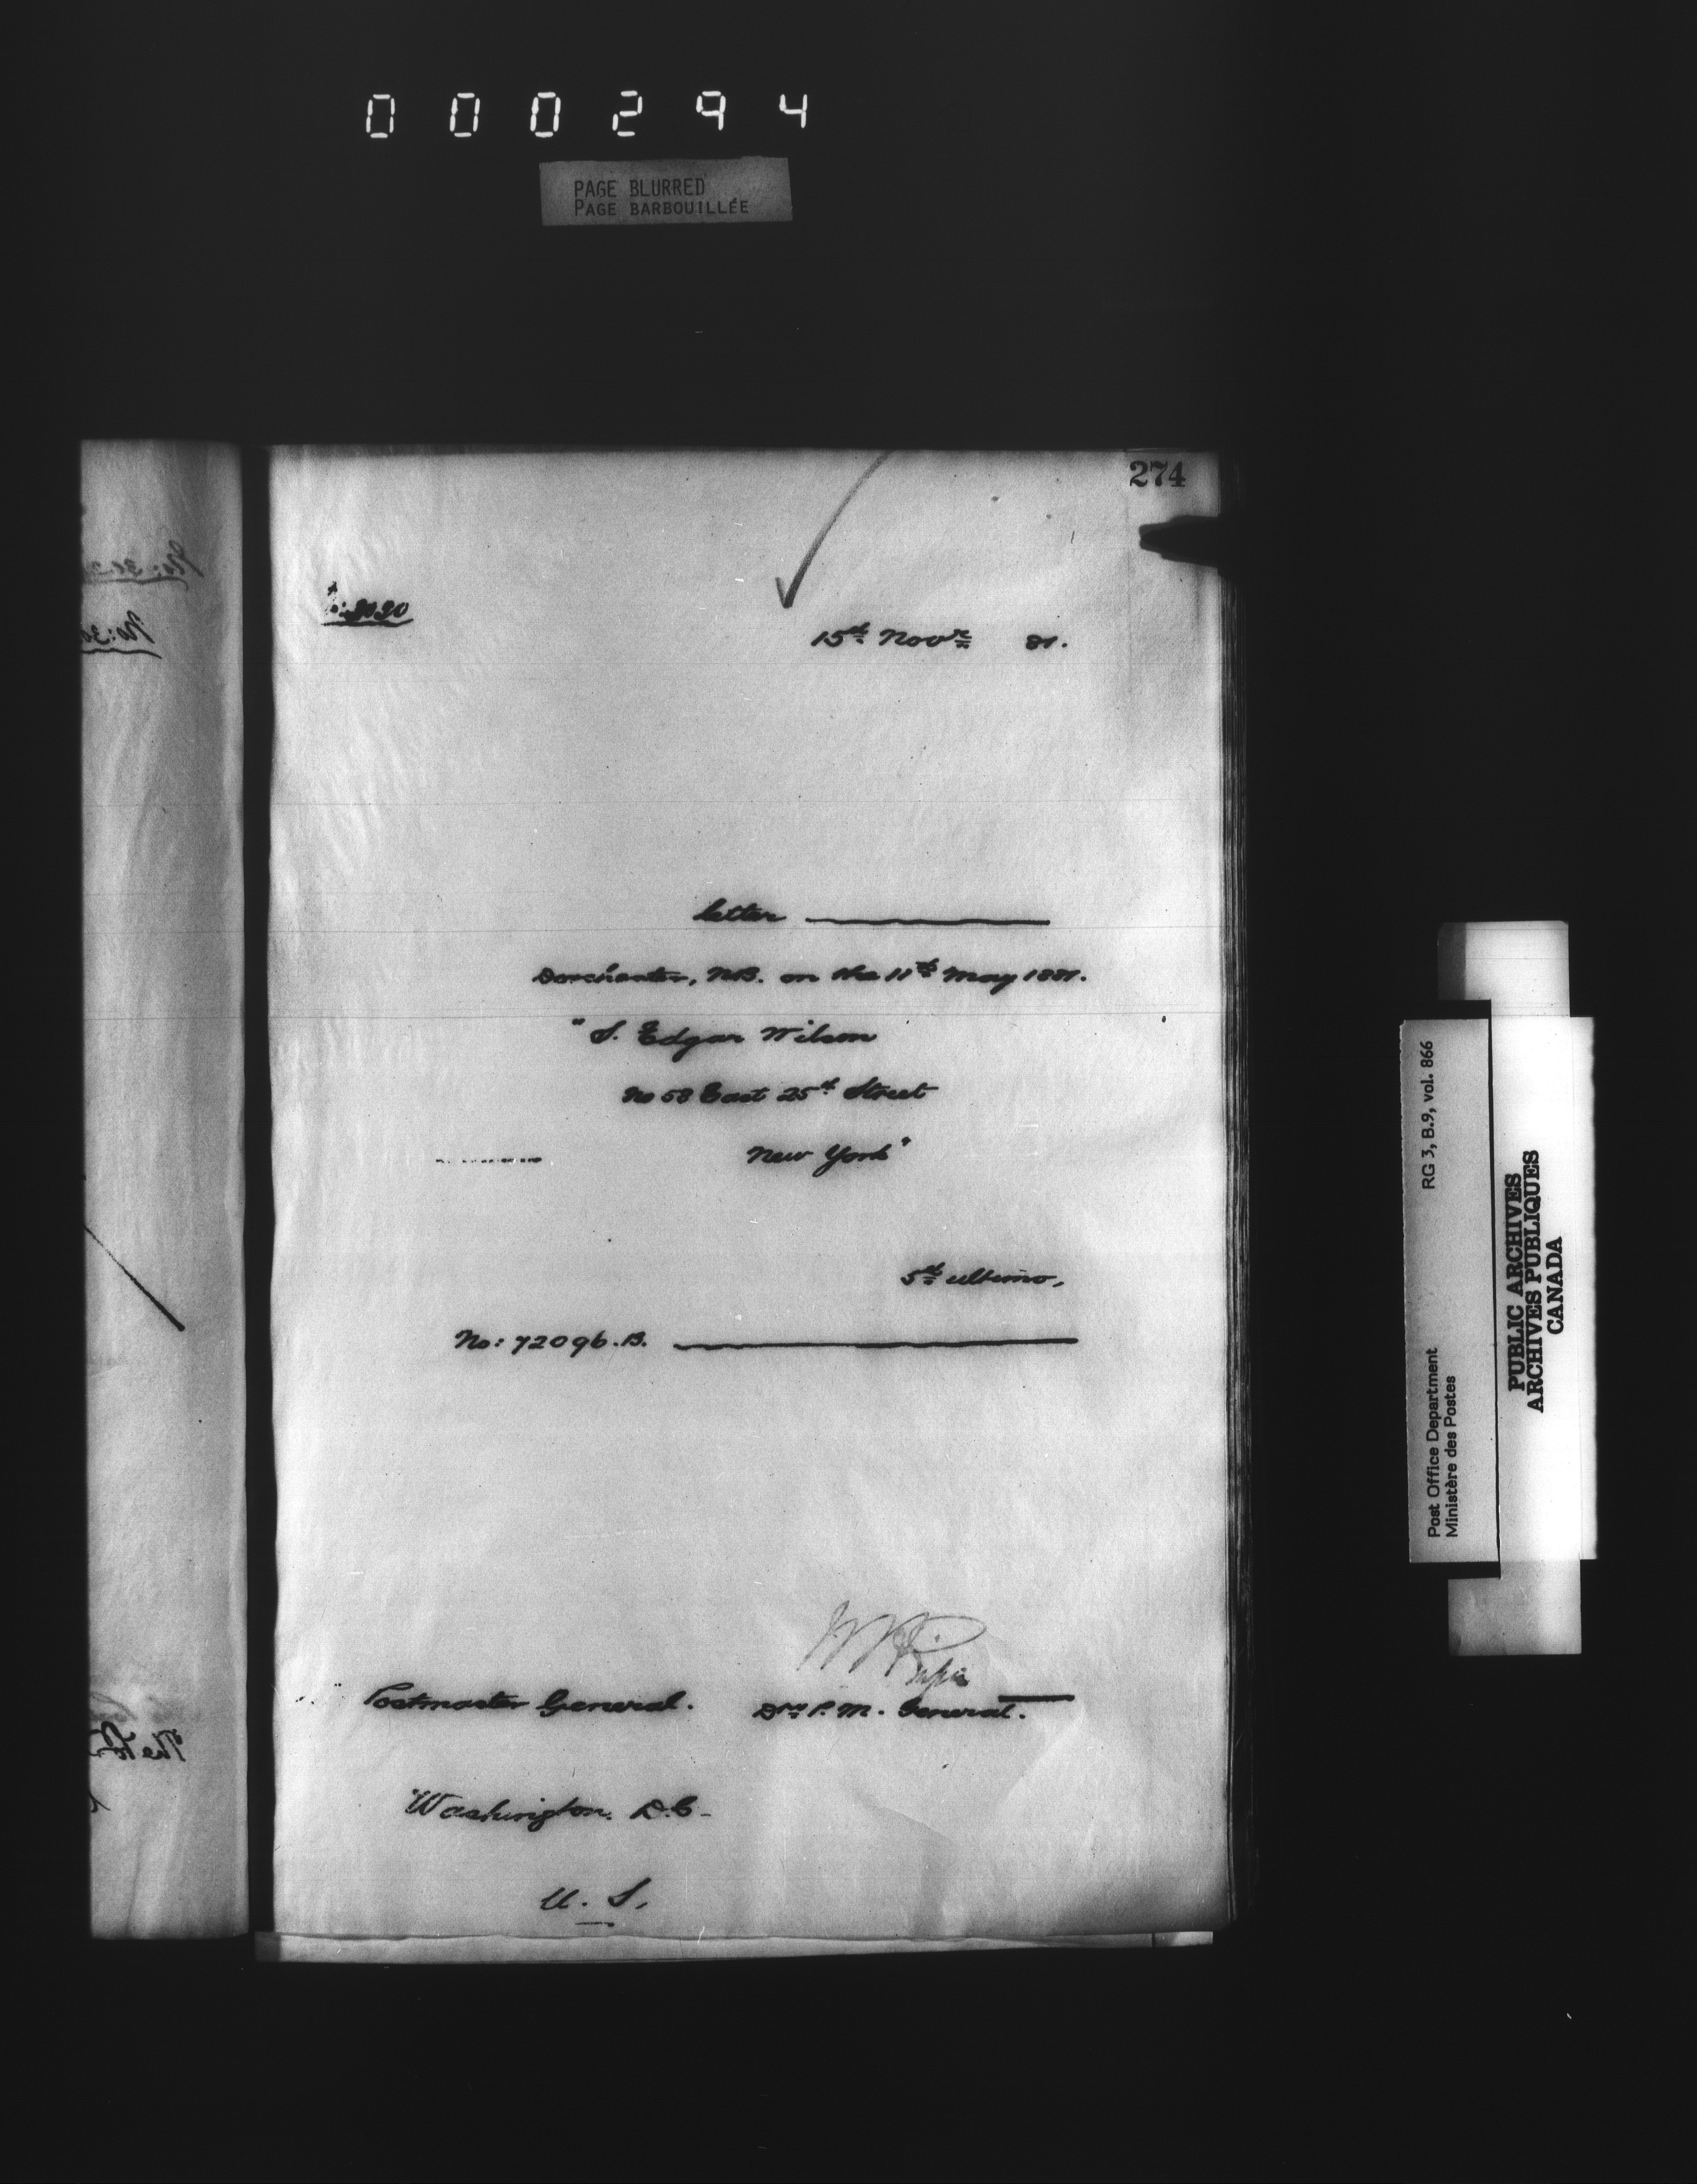 000294
PAGE BLURRED
PAGE BARBOUILLÉE
274
15th Novr 81.
letter
Dorchester, N.B. on the 11th May 1881.
"S. Edgar Wilson
No 58 East 25th Street
New York"
5th ultimo,
No: 72096.B.
Postmaster General.
Dy P.M. General.
Washington. D.C.
U.S.
RG 3, B.9, vol. 866
Post Office Department
Ministère des Postes
PUBLIC ARCHIVES
ARCHIVES PUBLIQUES
CANADA